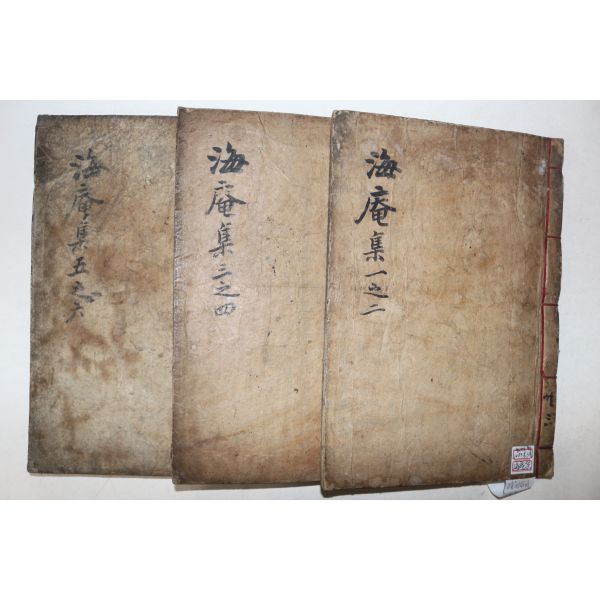 海庵集一之二
海庵集三之四
海庵集五之六